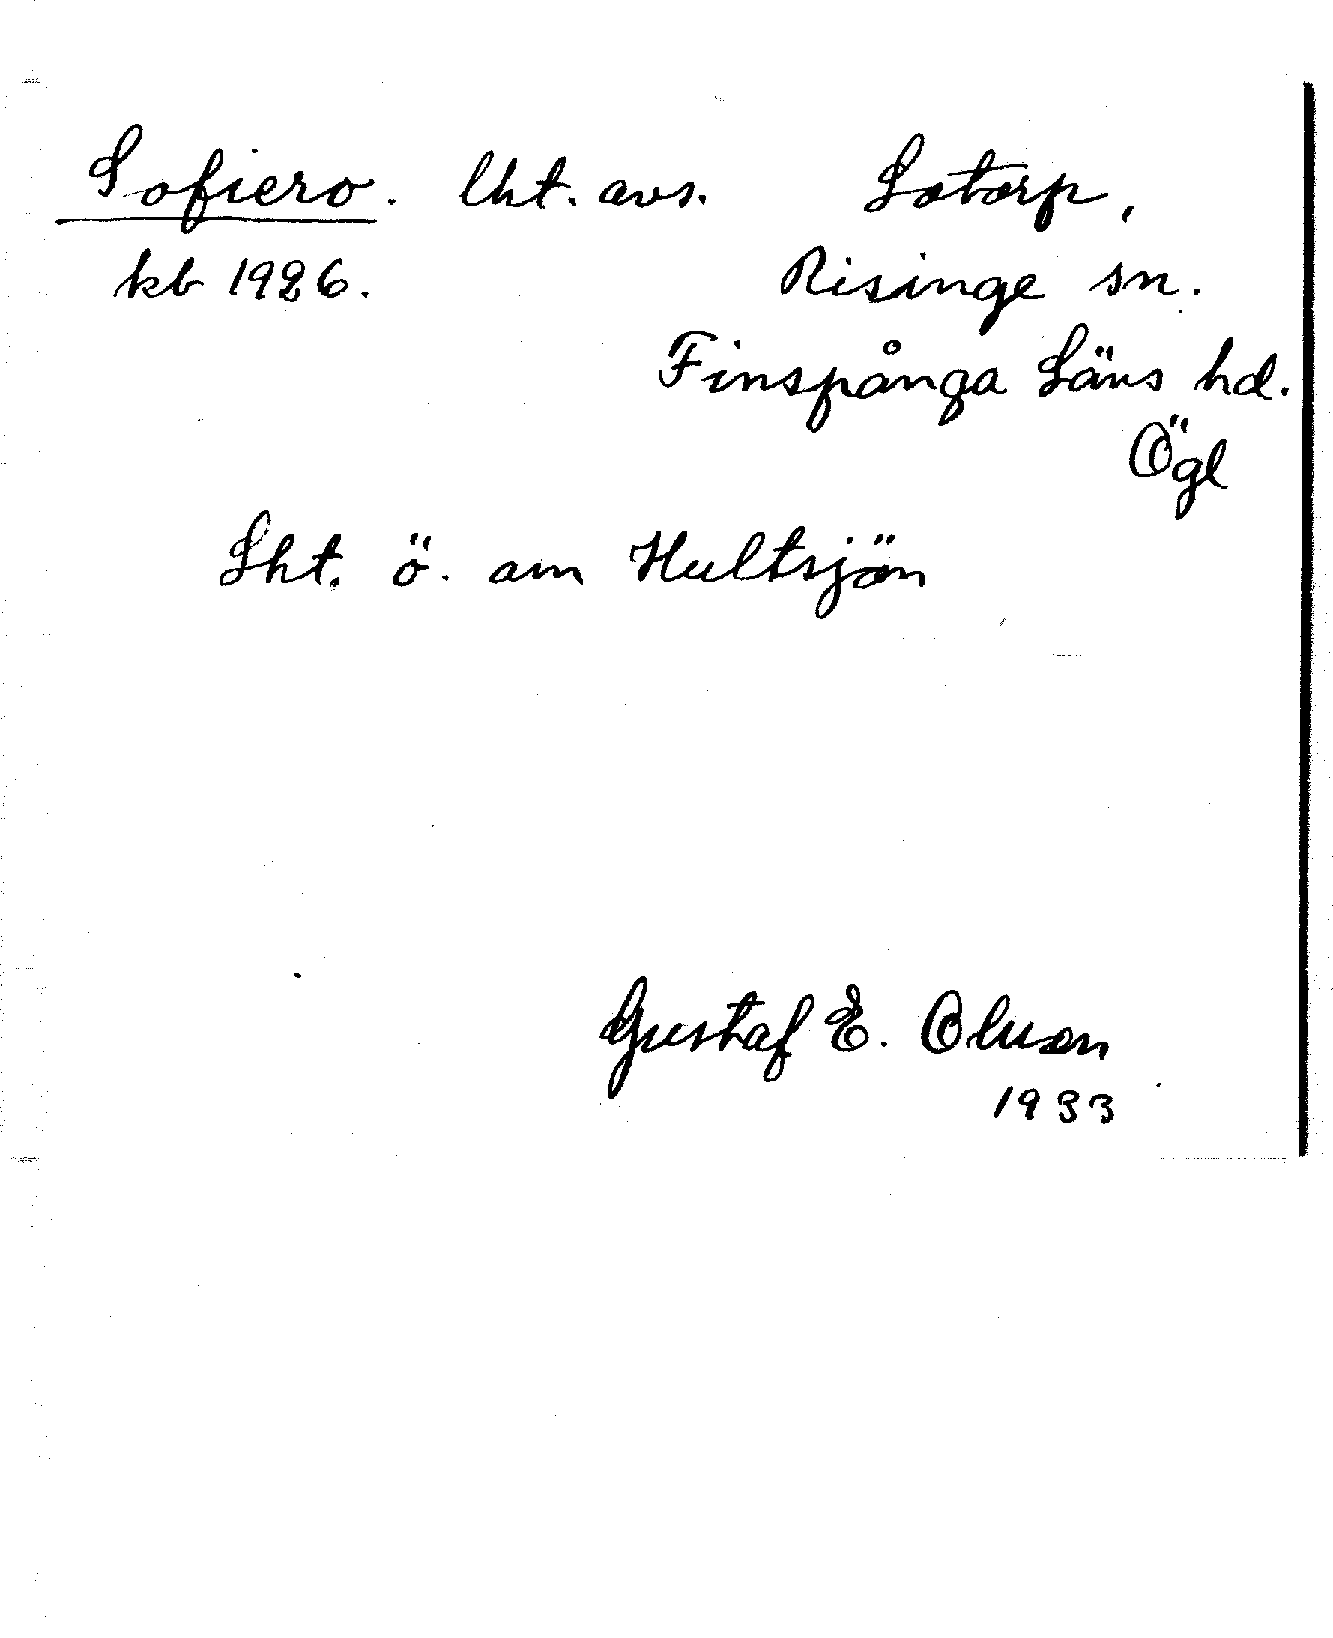 Sofiero. lht. avs. Lotorp,
kb 1926. Risinge sn.
Finspånga Läns hd.
Ögl
Lht. ö. om Hultsjön
Gustaf E. Olsson
1933